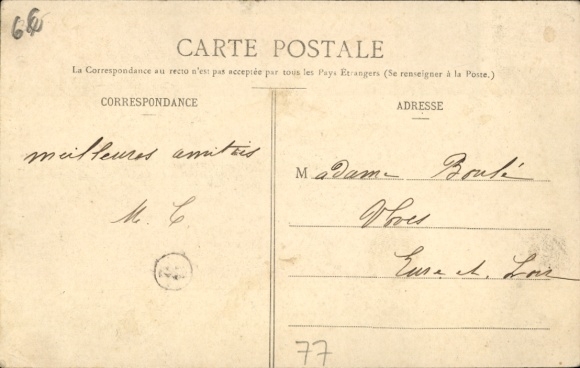 66
CARTE POSTALE
La Correspondance au recto n'est pas acceptée par tous les Pays Etrangers (Se renseigner à la Poste.)
CORRESPONDANCE
meilleures amitiés
M C
ADRESSE
Madame Boulé
Voves
Eure et Loir
77